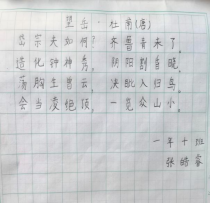 望岳·杜甫(唐)
岱宗夫如何？齐鲁青未了，
造化钟神秀，阴阳割昏晓，
荡胸生曾云，决眦入归鸟，
会当凌绝顶，一览众山小。
一年十班
张皓睿